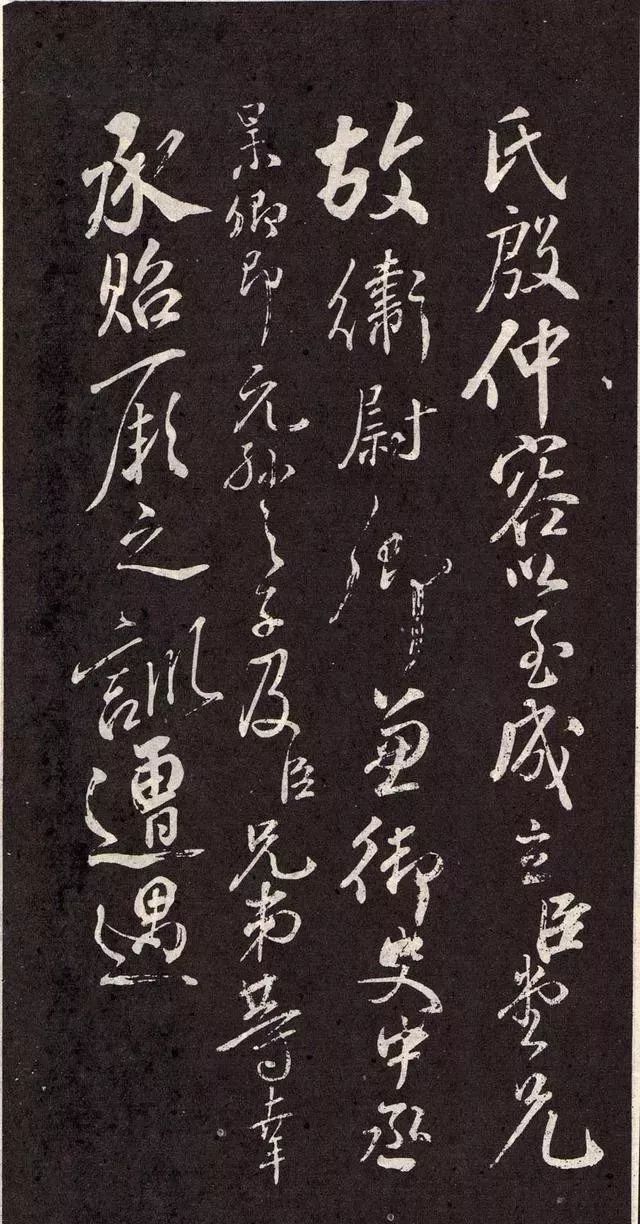 氏殷仲容以至成立臣堂兄
故衞尉卿兼御史中丞
杲卿即元孫之子及臣兄弟等幸
承貽厥之訓遭遇